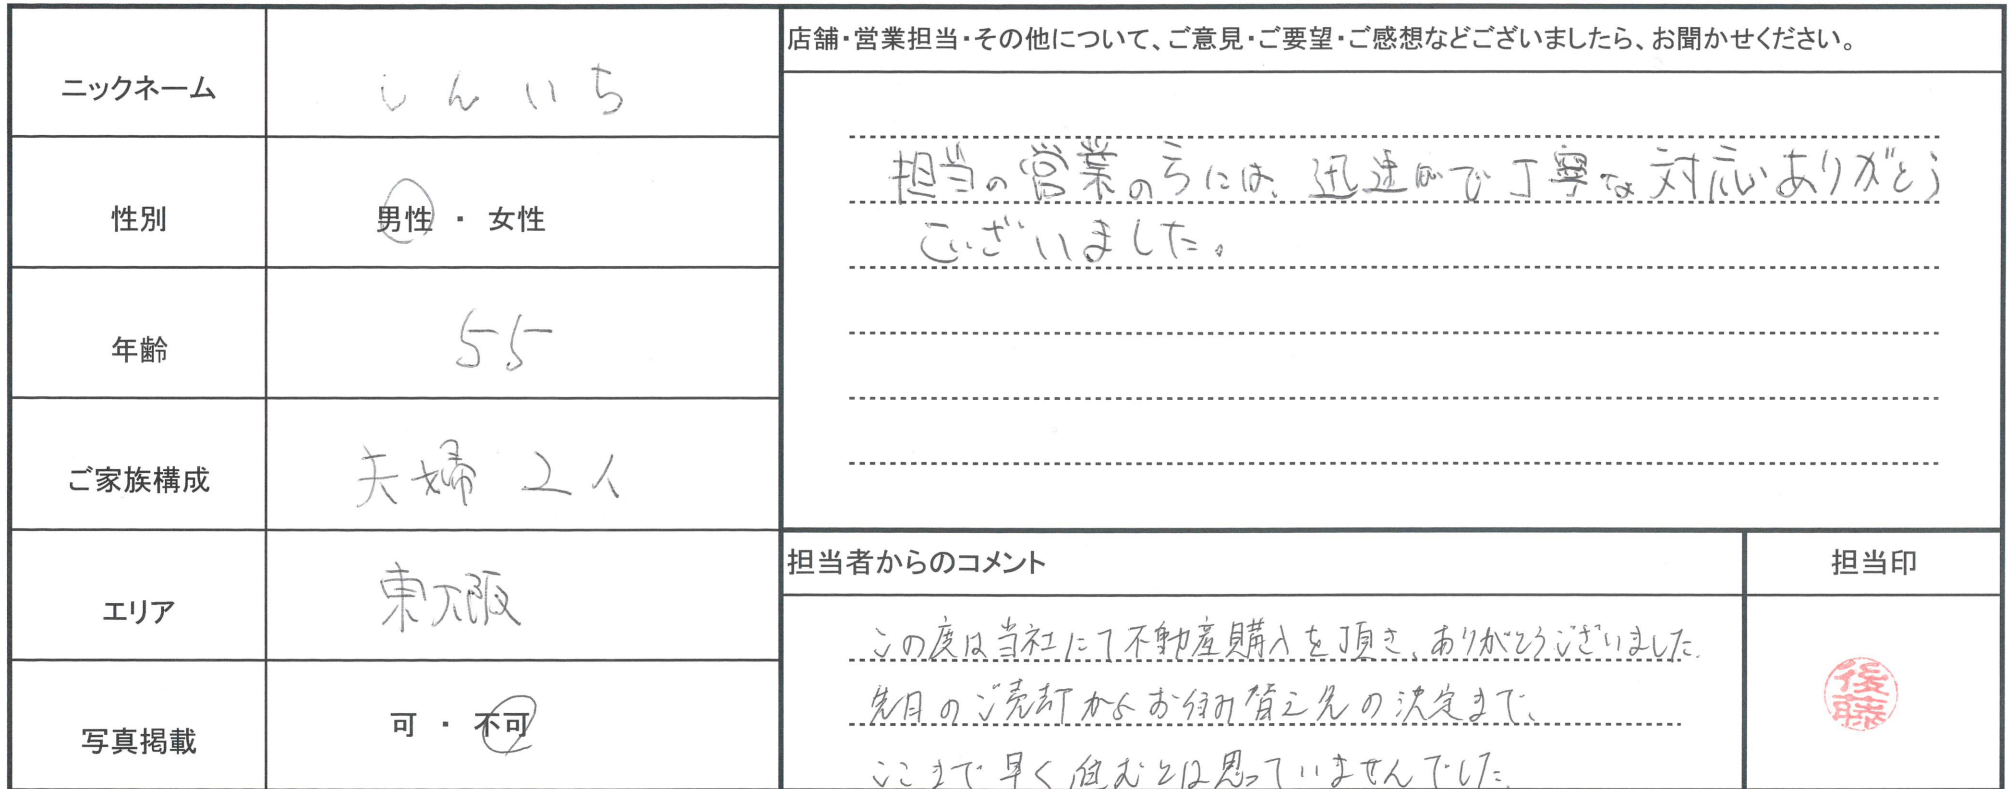 ニックネーム
しんいち
性別
男性 ・ 女性
年齢
55
ご家族構成
夫婦 2人
エリア
東大阪
写真掲載
可 ・ 不可
店舗・営業担当・その他について、ご意見・ご要望・ご感想などございましたら、お聞かせください。
担当の営業の方には、迅速かで丁寧な対応ありがとう
ございました。
担当者からのコメント
この度は当社にて不動産購入を頂き、ありがとうございました。
先月のご売却からお住み替え先の決定まで、
ここまで早く進むとは思っていませんでした。
担当印
後藤